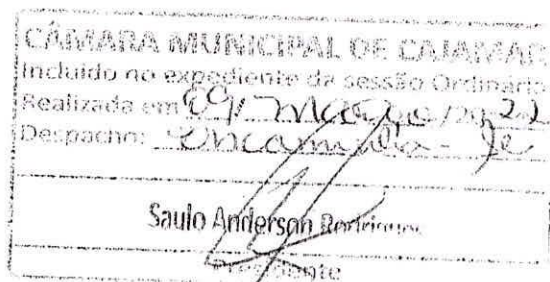 CÂMARA MUNICIPAL DE CAJAMAR
Incluido no expediente da sessão Ordinária
Realizada em 09/ março /20 22
Despacho: Encaminha-se
Saulo Anderson Rodrigues
Presidente